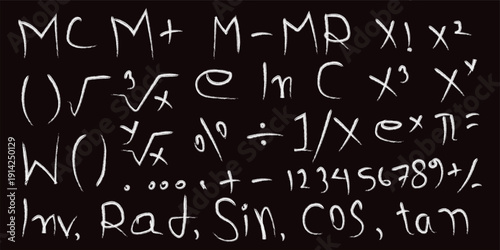 MC M+ M- MR X! X²
( ) √ ³√x e ln C X³ Xʸ
W ( ) ʸ√x % ÷ 1/X eˣ π =
. ... . + - 1 2 3 4 5 6 7 8 9 +/-
Inv, Rad, Sin, COS, tan
Adobe Stock | #1914250129